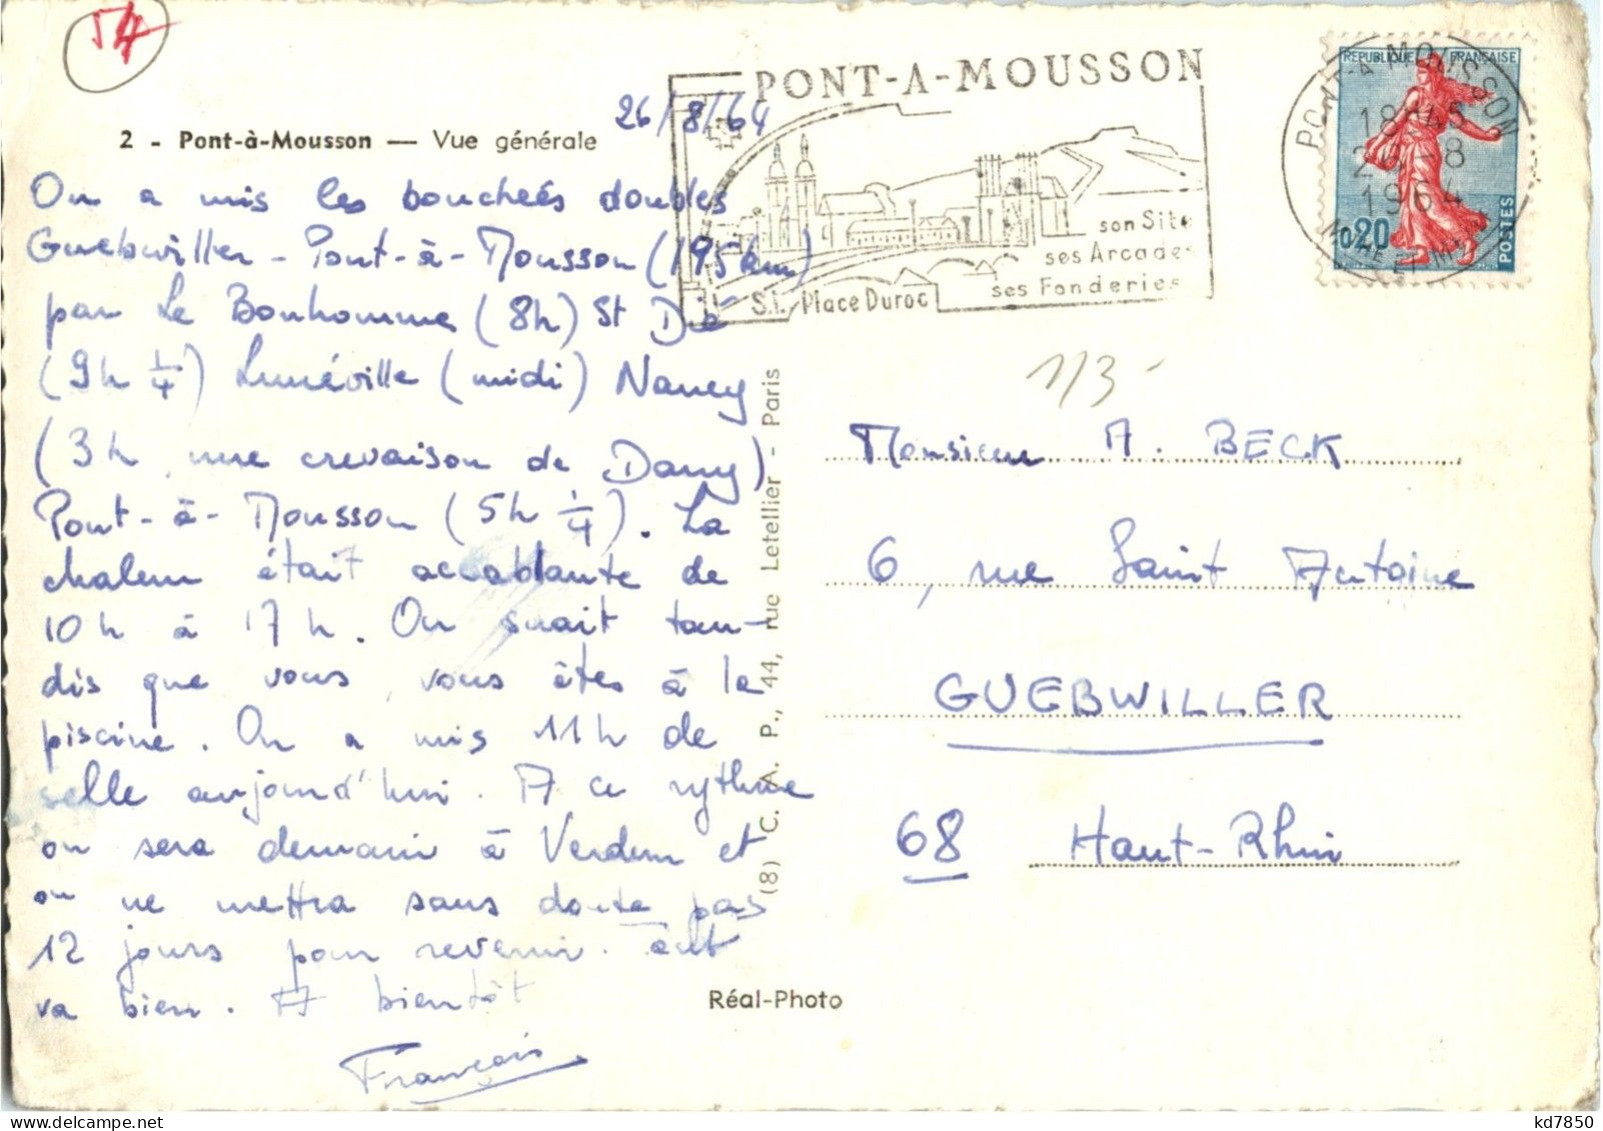 54
2 - Pont-à-Mousson — Vue générale
26/8/64
On a mis les boucheés doubles
Guebwiller - Pont-à-Mousson (195 km)
par Le Bonhomme (8h) St Dié
(9h 1/4) Lunéville (midi) Nancy
(3h, une crevaison de Dany)
Pont-à-Mousson (5h 1/4). La
chaleur était accablante de
10h à 17h. On suait tan-
dis que vous, vous êtes à la
piscine. On a mis 11h de
selle aujourd'hui. A ce rythme
on sera demain à Verdun et
on ne mettra sans doute pas
12 jours pour revenir. Tout
va bien. A bientôt
François
PONT-A-MOUSSON
son Site
ses Arcades
ses Fonderies
S.I. Place Duroc
REPUBLIQUE FRANÇAISE
0,20
POSTES
PONT-A-MOUSSON
18H45
26-8
1964
MEURTHE ET MLLE
(8) C. A. P., 44, rue Letellier - Paris
113-
Monsieur A. BECK
6, rue Saint Antoine
GUEBWILLER
68 Haut-Rhin
Réal-Photo
kd7850